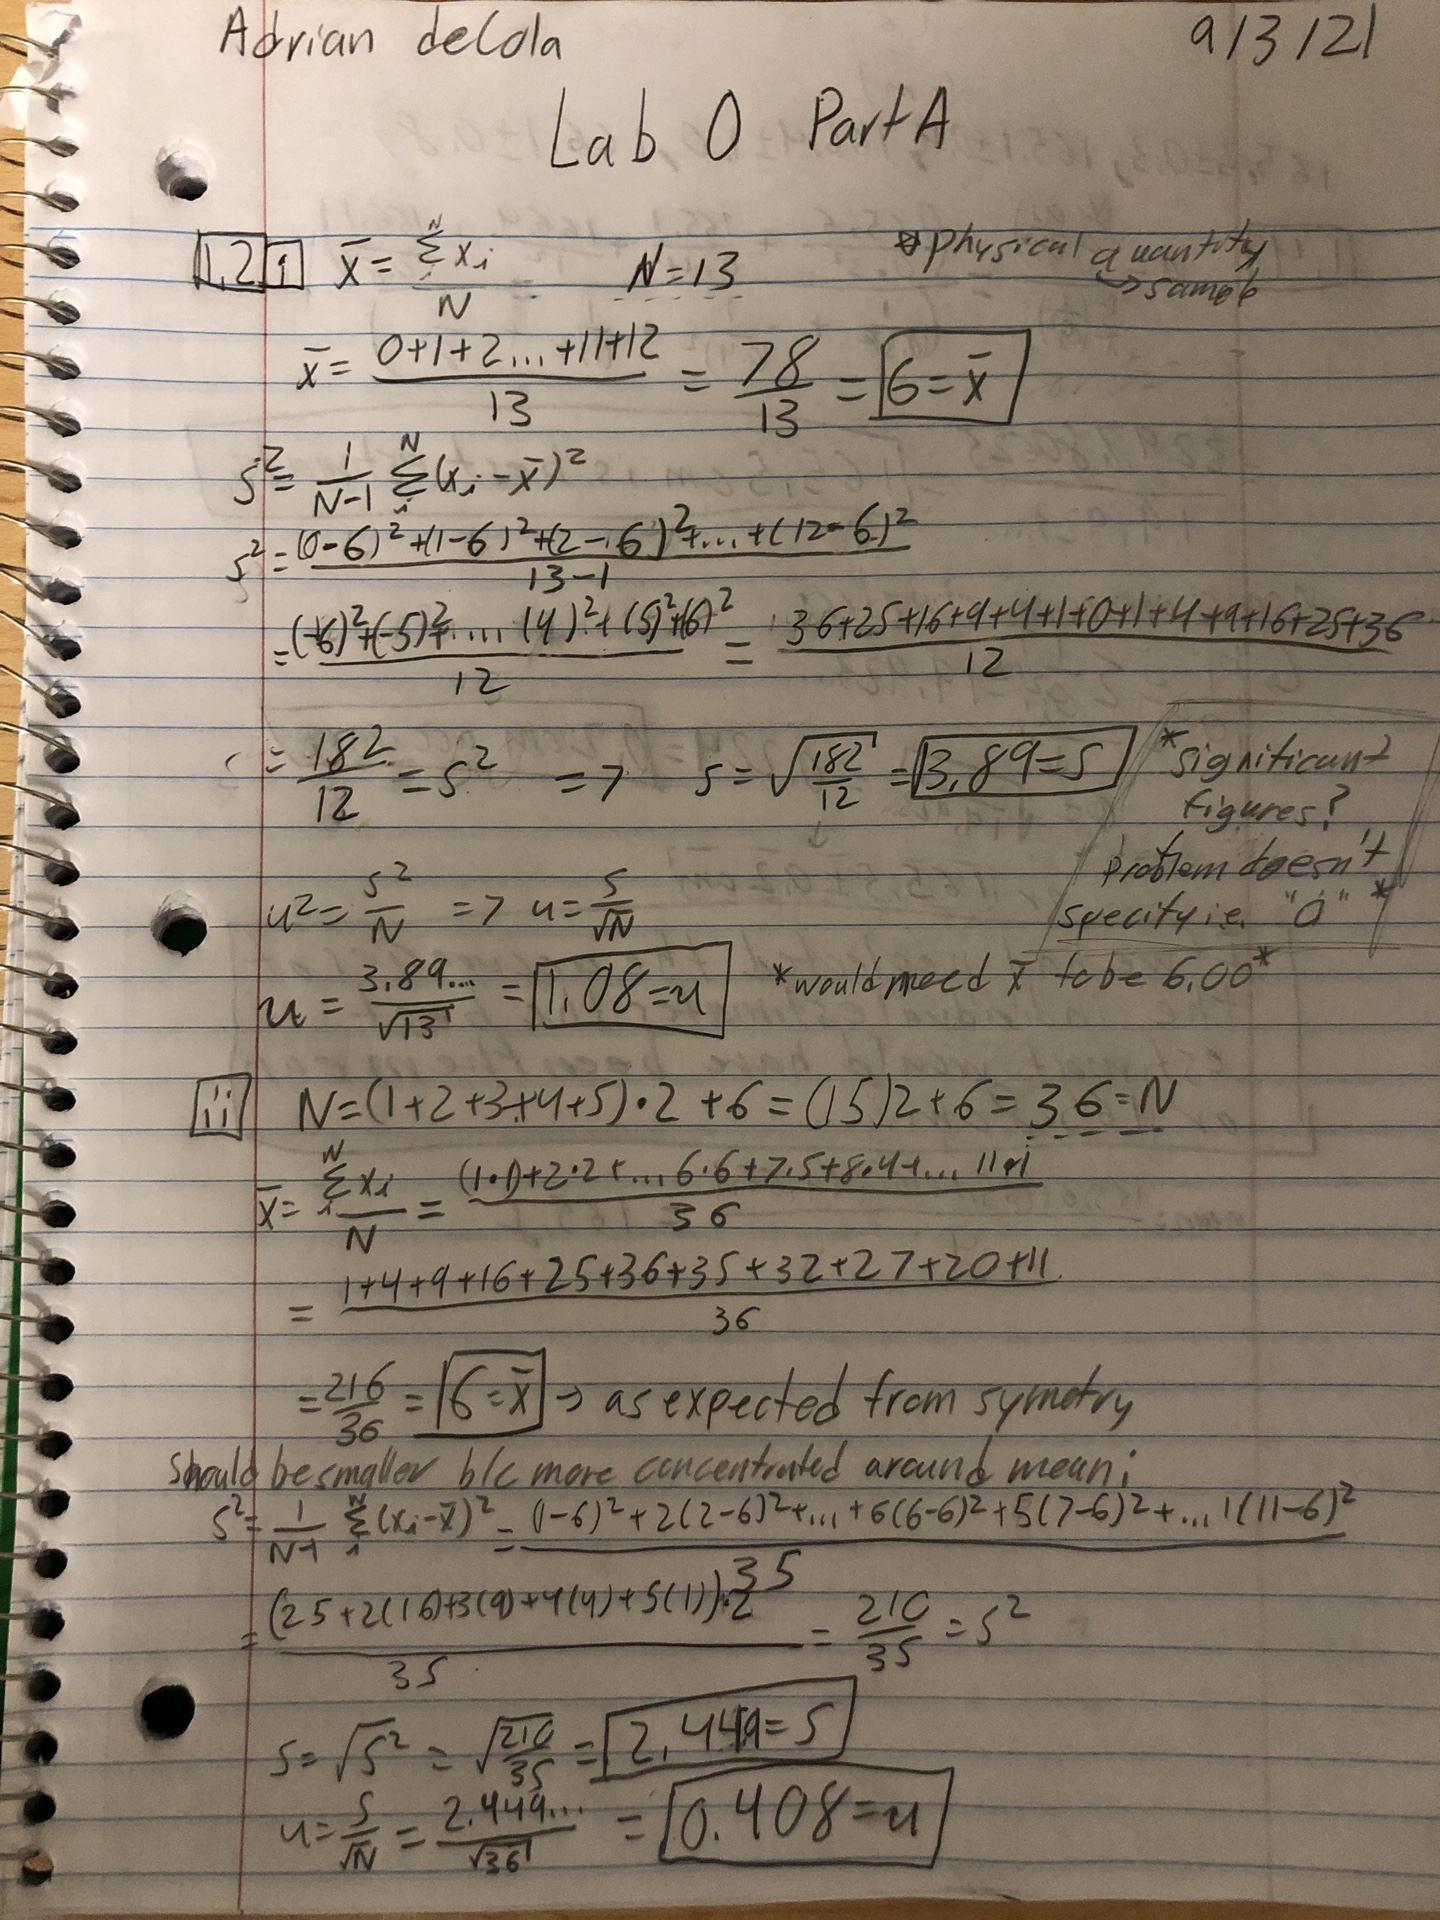 Adrian deCola 9/3/21
Lab 0 Part A
1.2 i x̄ = Σᵢᴺ xᵢ / N N=13 *physical quantity
→ same
x̄ = (0+1+2...+11+12)/13 = 78/13 = 6=x̄
s² = 1/(N-1) Σᵢᴺ (xᵢ-x̄)²
s² = ((0-6)²+(1-6)²+(2-6)²+...+(12-6)²)/(13-1)
= ((-6)²+(-5)²+....(4)²+(5)²+(6)²)/12 = (36+25+16+9+4+1+0+1+4+9+16+25+36)/12
= 182/12 = s² => s = √(182/12) = 3.89=s
*significant
figures?
problem doesn't
specify i.e. "0" *
u² = s²/N => u = s/√N
u = 3.89.../√13 = 1.08=u *would need x̄ to be 6.00*
ii N=(1+2+3+4+5)·2+6=(15)2+6=36=N
x̄ = Σᵢᴺ xᵢ / N = ((1·1)+2·2+...6·6+7·5+8·4+...11·1)/36
= (1+4+9+16+25+36+35+32+27+20+11)/36
= 216/36 = 6=x̄ → as expected from symetry
Should be smaller b/c more concentrated around mean;
s² = 1/(N-1) Σᵢᴺ (xᵢ-x̄)² = ((1-6)²+2(2-6)²+...+6(6-6)²+5(7-6)²+...1(11-6)²)/35
= ((25+2(16)+3(9)+4(4)+5(1))·2)/35 = 210/35 = s²
s = √s² = √(210/35) = 2.449=s
u = s/√N = 2.449.../√36 = 0.408=u